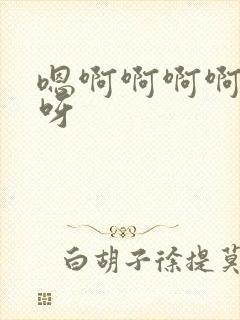 嗯啊啊啊啊
呀
白胡子徐提莫